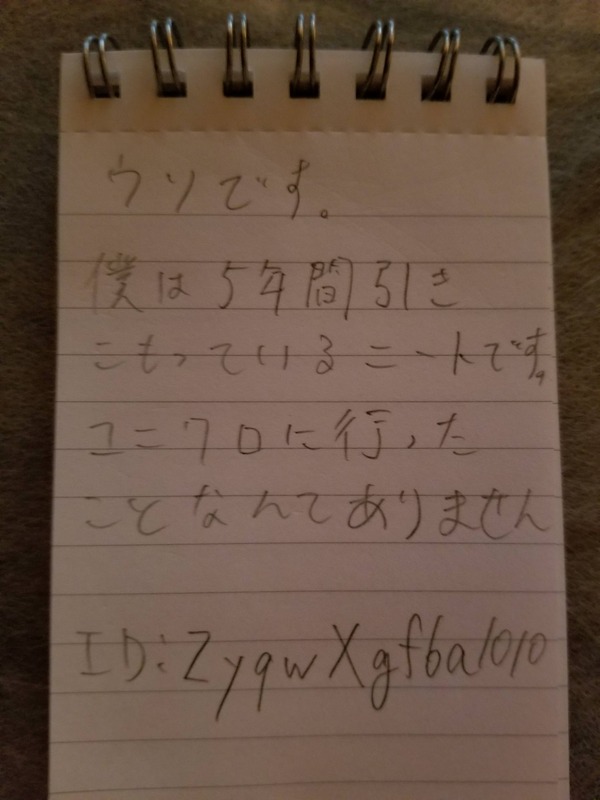 ウソです。
僕は5年間引き
こもっているニートです。
ユニクロに行った
ことなんてありません
ID:ZyqwXgfba1010